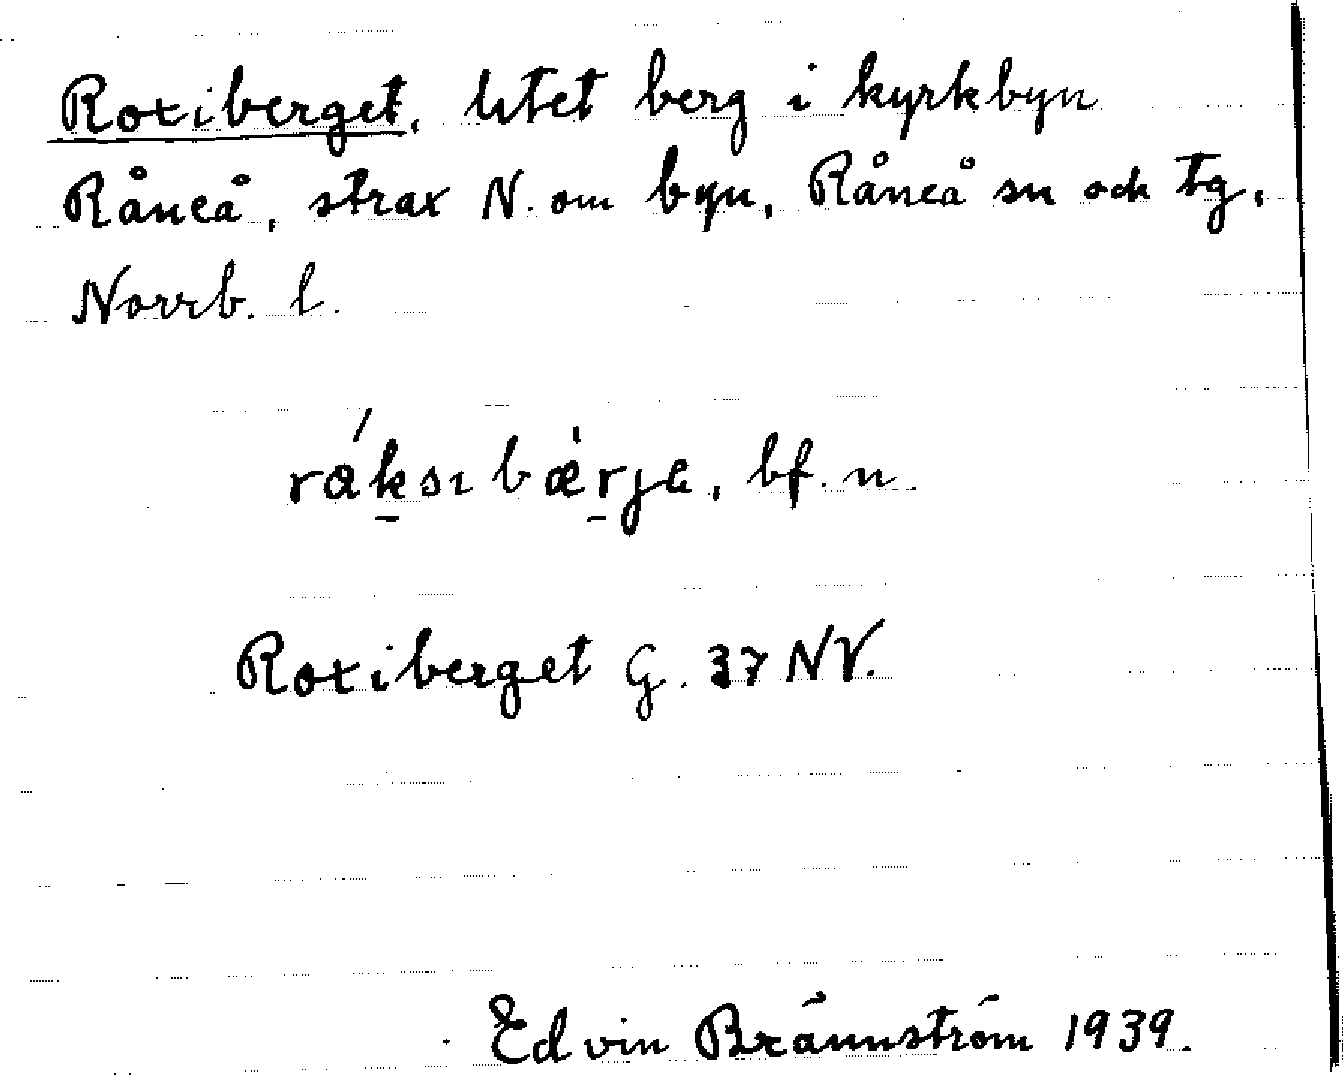 Roxiberget, litet berg i kyrkbyn
Råneå, strax N. om byn, Råneå sn och tg,
Norrb. l.
ráksɩbæ̀rjɐ, bf. n.
Roxiberget G. 37 NV.
Edvin Brännström 1939.